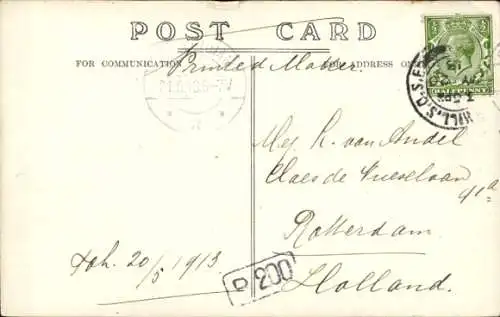 POST CARD
FOR COMMUNICATION
FOR ADDRESS ON
Printed Matter.
HALFPENNY
HILL S.O. S.E.
Mej. R. van Andel
Claes de Vrieselaan
41a
Rotterdam
Holland.
Joh. 20/5 1913.
P 200